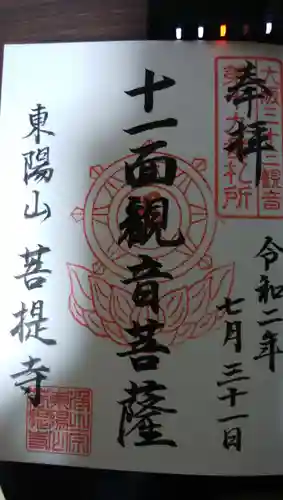 奉拝
大阪三十三観音
札所
令和二年
七月三十一日
十一面観音菩薩
東陽山 菩提寺